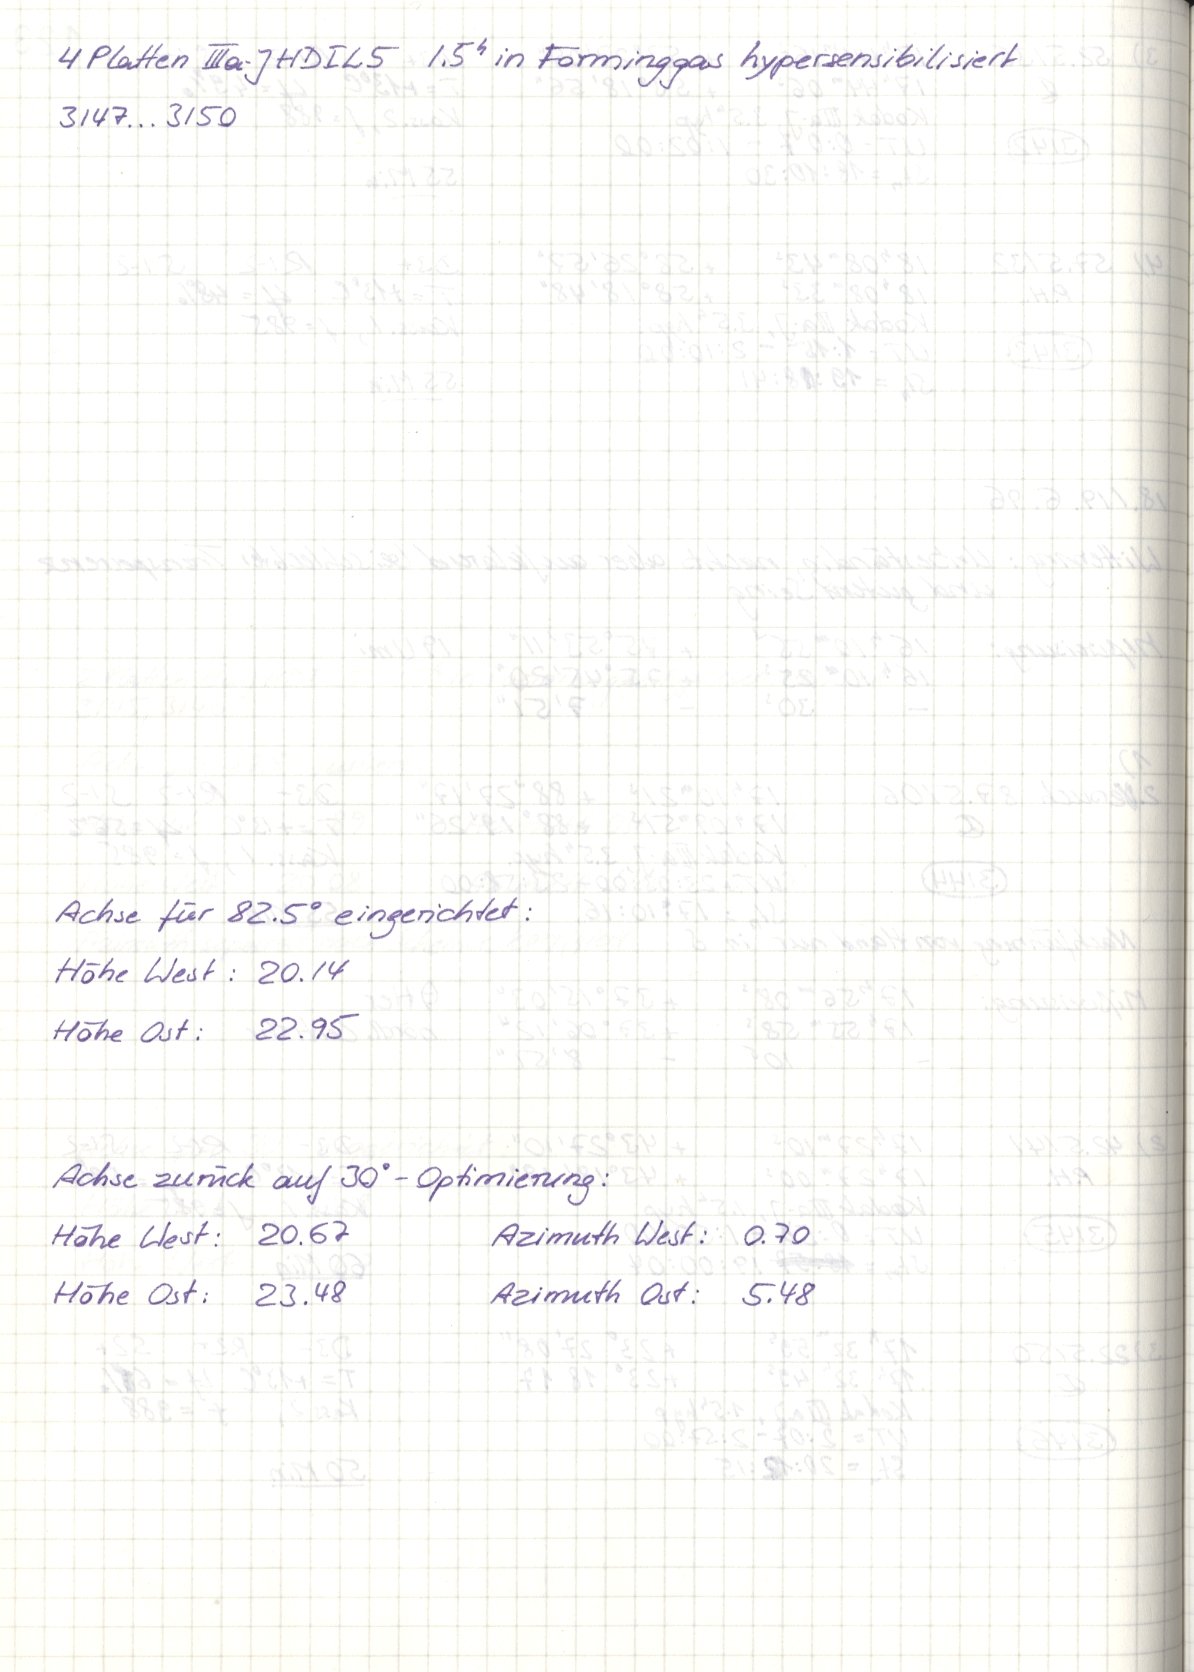 4 Platten IIIa-J HDIL5 1.5ʰ in Forminggas hypersensibilisiert
3147...3150
Achse für 82.5° eingerichtet:
Höhe West: 20.14
Höhe Ost: 22.95
Achse zurück auf 30°-Optimierung:
Höhe West: 20.67 Azimuth West: 0.70
Höhe Ost: 23.48 Azimuth Ost: 5.48